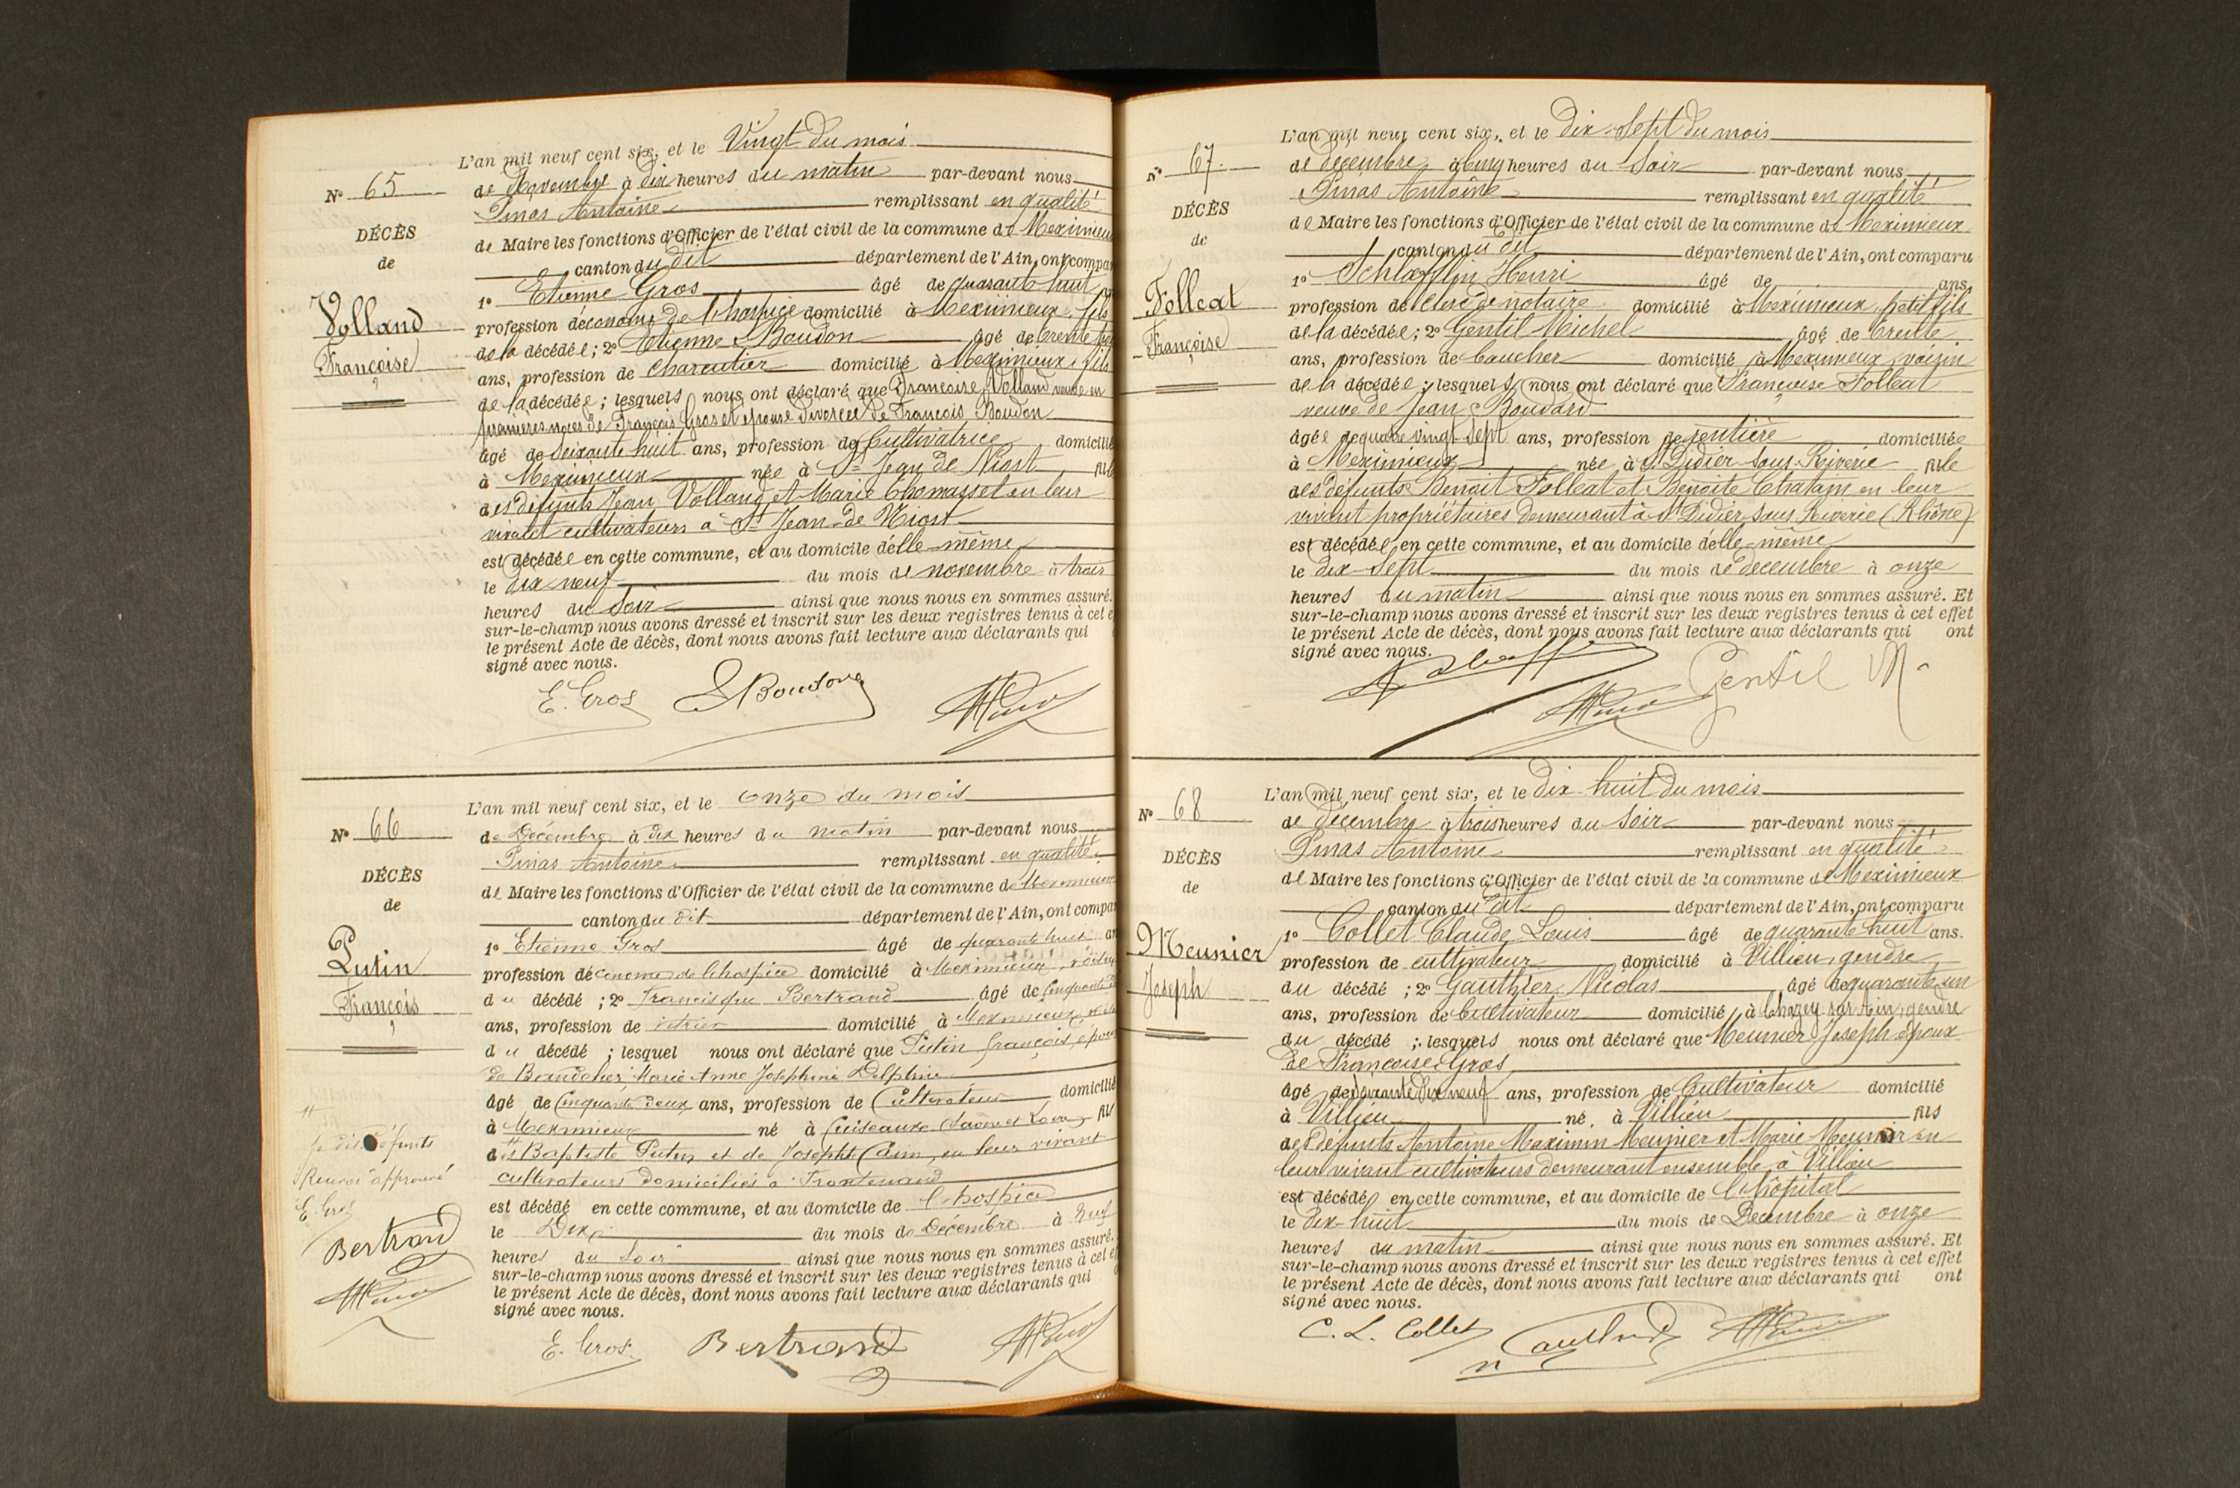 L'an mil neuf cent six, et le Vingt du mois
Nº 65
de Novembre à dix heures du matin par-devant nous
Pinas Antoine remplissant en qualité
DÉCÈS
de Maire les fonctions d'Officier de l'état civil de la commune de Meximieux
de
canton du dit département de l'Ain, ont compa
1º Etienne Gros âgé de quarante huit
Volland
profession d'économe de l'hospice domicilié à Meximieux, fils
Françoise
de la décédée; 2º Etienne Boudon âgé de trente
ans, profession de charcutier domicilié à Meximieux, fils
de la décédée; lesquels nous ont déclaré que Françoise Volland veuve en
premières noces de François Gros et épouse divorcée de François Boudon
âgé de soixante huit ans, profession de Cultivatrice domicilié
à Meximieux née à St Jean de Niost fille
des défunts Jean Volland et Marie Thomasset en leur
vivant cultivateurs à St Jean-de Niost
est décédée en cette commune, et au domicile d'elle-même
le dix neuf du mois de novembre à trois
heures du Soir ainsi que nous nous en sommes assuré.
sur-le-champ nous avons dressé et inscrit sur les deux registres tenus à cet e
le présent Acte de décès, dont nous avons fait lecture aux déclarants qui
signé avec nous.
E. Gros E Boudon
L'an mil neuf cent six, et le onze du mois
Nº 66
de Décembre à dix heures du matin par-devant nous
Pinas Antoine remplissant en qualité
DÉCÈS
de Maire les fonctions d'Officier de l'état civil de la commune de Meximieux
de
canton du dit département de l'Ain, ont compa
1º Etienne Gros âgé de quarante huit an
Putin
profession d'économe de l'hospice domicilié à Meximieux, voisin
François
du décédé; 2º Francisque Bertrand âgé de Cinquante
ans, profession de vitrier domicilié à Meximieux
du décédé; lesquel nous ont déclaré que Putin François, époux
de Baudelier Marie Anne Joséphine Delphine
âgé de Cinquante deux ans, profession de Cultivateur domicilié
à Meximieux né à Cuiseaux (Saône et Loire) fils
de Baptiste Putin et de Josephte Caim, en leur vivant
cultivateurs domiciliés à Frontenaud
défunts
Renvoi approuvé
E. Gros
Bertrand
est décédé en cette commune, et au domicile de l'hospice
le Dix du mois de Décembre à neuf
heures du Soir ainsi que nous nous en sommes assuré.
sur-le-champ nous avons dressé et inscrit sur les deux registres tenus à cet ef
le présent Acte de décès, dont nous avons fait lecture aux déclarants qui
signé avec nous.
E. Gros Bertrand
L'an mil neuf cent six, et le dix-sept du mois
Nº 67.
de décembre à cinq heures du Soir par-devant nous
Pinas Antoine remplissant en qualité
DÉCÈS
de Maire les fonctions d'Officier de l'état civil de la commune de Meximieux
de
canton du dit département de l'Ain, ont comparu
1º Schlæfflin Henri âgé de ans,
Folleat
profession de Clerc de notaire domicilié à Meximieux, petit fils
Françoise
de la décédée; 2º Gentil Michel âgé de trente
ans, profession de boucher domicilié à Meximieux voisin
de la décédée; lesquels nous ont déclaré que Françoise Folleat
veuve de Jean Boudard
âgée de quatre vingt sept ans, profession de rentière domiciliée
à Meximieux née à St Didier-sous-Riverie fille
des défunts Benoit Folleat et Benoite Chatam en leur
vivant propriétaires demeurant à St Didier sous Riverie (Rhône)
est décédée en cette commune, et au domicile d'elle-même
le dix-sept du mois de decembre à onze
heures du matin ainsi que nous nous en sommes assuré. Et
sur-le-champ nous avons dressé et inscrit sur les deux registres tenus à cet effet
le présent Acte de décès, dont nous avons fait lecture aux déclarants qui ont
signé avec nous.
Gentil M
L'an mil neuf cent six, et le dix huit du mois
Nº 68
de décembre à trois heures du Soir par-devant nous
Pinas Antoine remplissant en qualité
DÉCÈS
de Maire les fonctions d'Officier de l'état civil de la commune de Meximieux
de
canton du dit département de l'Ain, ont comparu
1º Collet Claude Louis âgé de quarante huit ans.
Meunier
profession de cultivateur domicilié à Villieu, gendre
Joseph
du décédé; 2º Gauthier Nicolas âgé de quarante un
ans, profession de Cultivateur domicilié à Chazey-sur-Ain, gendre
du décédé; lesquels nous ont déclaré que Meunier Joseph époux
de Françoise Gros
âgé de soixante dix neuf ans, profession de Cultivateur domicilié
à Villieu né à Villieu fils
des défunts Antoine Maximin Meunier et Marie Meunier en
leur vivant cultivateurs demeurant ensemble à Villieu
est décédé en cette commune, et au domicile de l'hôpital
le dix-huit du mois de Decembre à onze
heures du matin ainsi que nous nous en sommes assuré. Et
sur-le-champ nous avons dressé et inscrit sur les deux registres tenus à cet effet
le présent Acte de décès, dont nous avons fait lecture aux déclarants qui ont
signé avec nous.
C. L. Collet